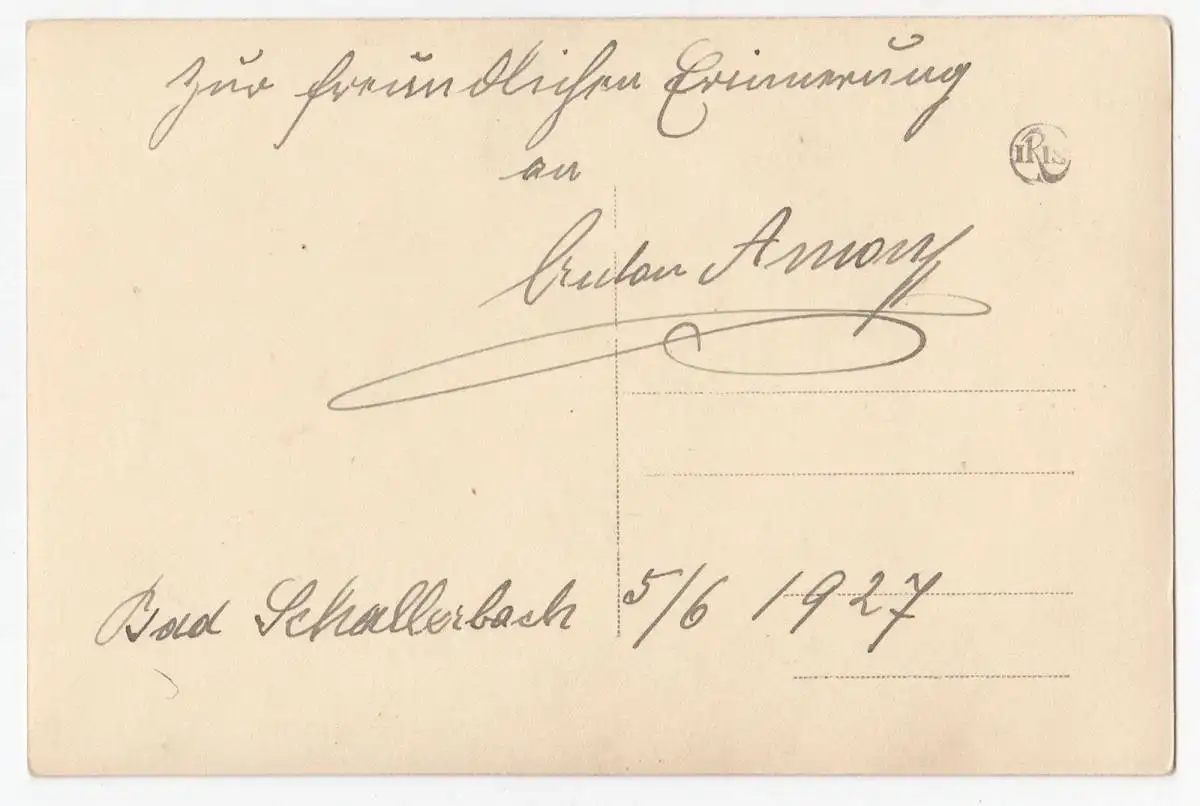 Zur freundlichen Erinnerung
IRIS
an
Anton Amon
Bad Schallerbach 5/6 1927